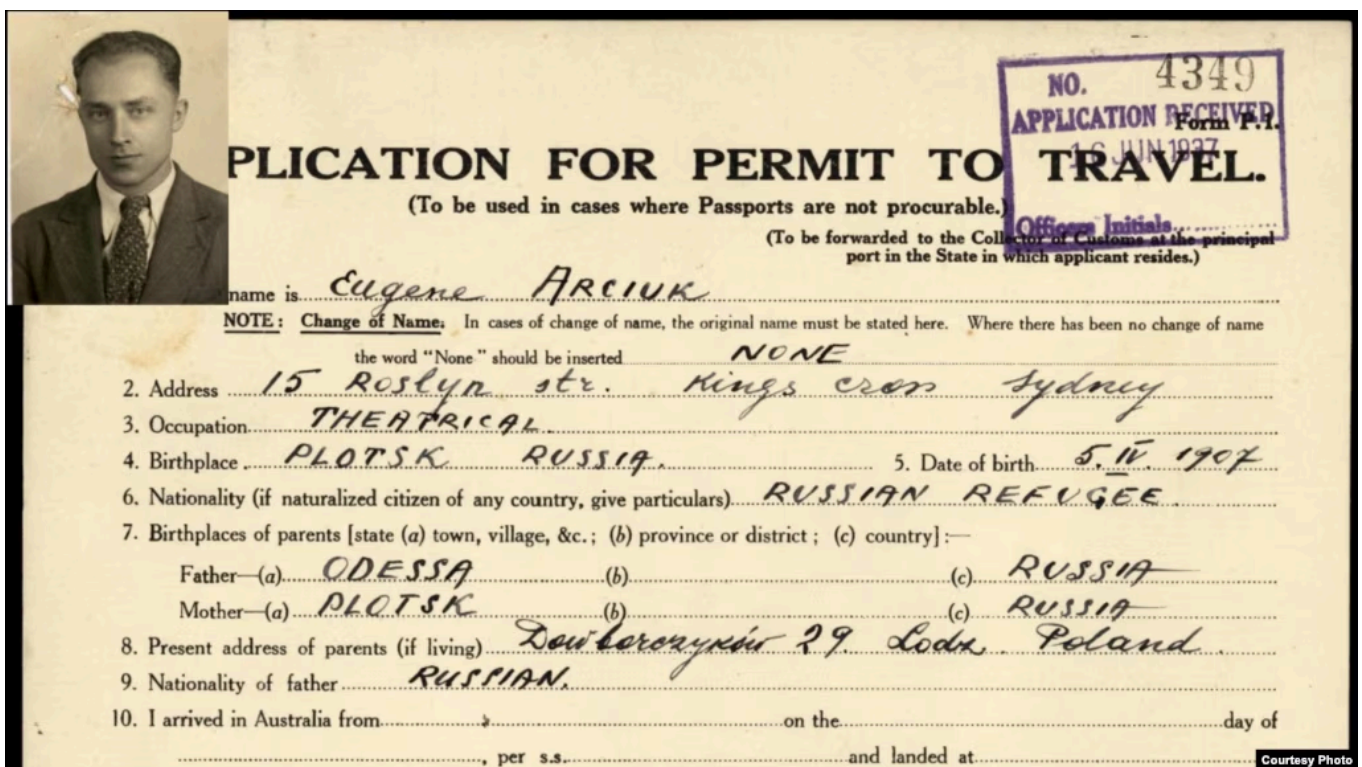 NO. 4349
APPLICATION RECEIVED
Form P.1.
16 JUN 1937
PLICATION FOR PERMIT TO TRAVEL.
(To be used in cases where Passports are not procurable.)
Officers Initials
(To be forwarded to the Collector of Customs at the principal
port in the State in which applicant resides.)
name is Eugene ARCIUK
NOTE: Change of Name. In cases of change of name, the original name must be stated here. Where there has been no change of name
the word "None" should be inserted NONE
2. Address 15 Roslyn str. Kings cross Sydney
3. Occupation THEATRICAL
4. Birthplace PLOTSK RUSSIA. 5. Date of birth 5. IV. 1907
6. Nationality (if naturalized citizen of any country, give particulars) RUSSIAN REFUGEE.
7. Birthplaces of parents [state (a) town, village, &c.; (b) province or district; (c) country]:—
Father—(a) ODESSA (b) (c) RUSSIA
Mother—(a) PLOTSK (b) (c) RUSSIA
8. Present address of parents (if living) Dowborczyków 29. Lodz. Poland.
9. Nationality of father RUSSIAN.
10. I arrived in Australia from on the day of
, per s.s. and landed at
Courtesy Photo